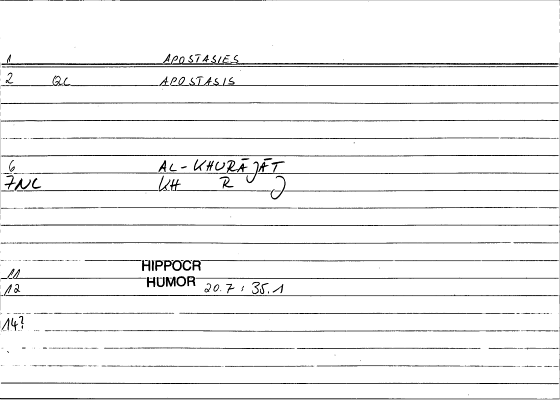 1 APOSTASIES
2 QL APOSTASIS
6 AL-KHURĀJĀT
7NL KH R J
11 HIPPOCR
12 HUMOR 20.7 : 35.1
14?